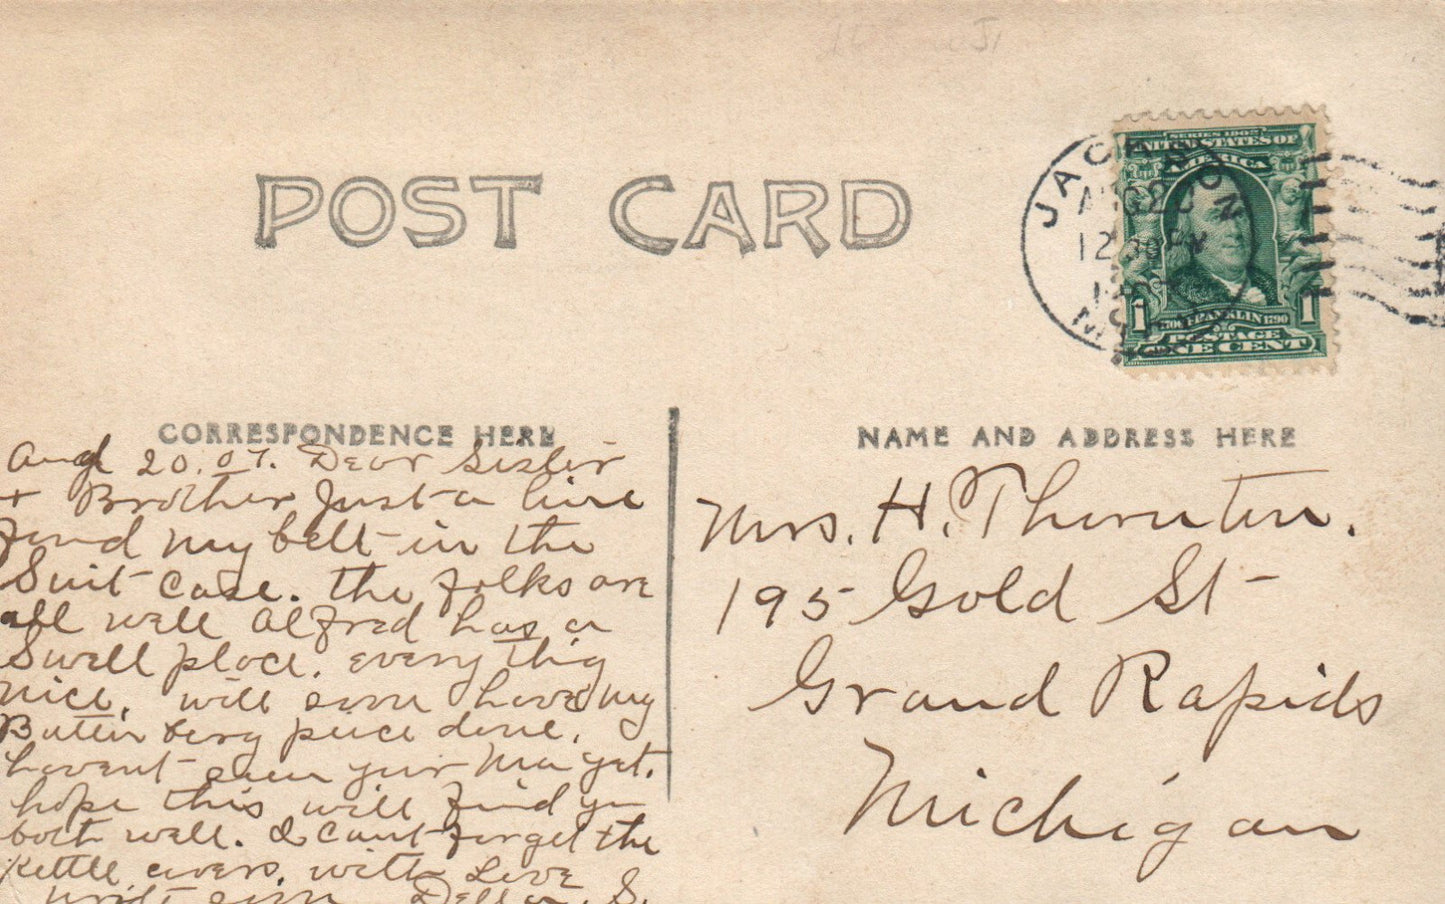 POST CARD
JACKSON
AUG 20
12 30 PM
1907
MICH
SERIES 1902
UNITED STATES OF
AMERICA
1 FRANKLIN 1790 1
POSTAGE
ONE CENT
CORRESPONDENCE HERE
Aug 20. 07. Dear Sister
+ Brother Just a line
find my belt in the
Suit Case. the folks are
all well Alfred has a
Swell place. every thig
nice. will soon have my
Butten berg peice done.
havent seen your Ma yet.
hope this will find yu
both well. I cant forget the
Kettle covers. with Love
write soon Della. S.
NAME AND ADDRESS HERE
Mrs. H. Thornton.
195 Gold St
Grand Rapids
Michigan